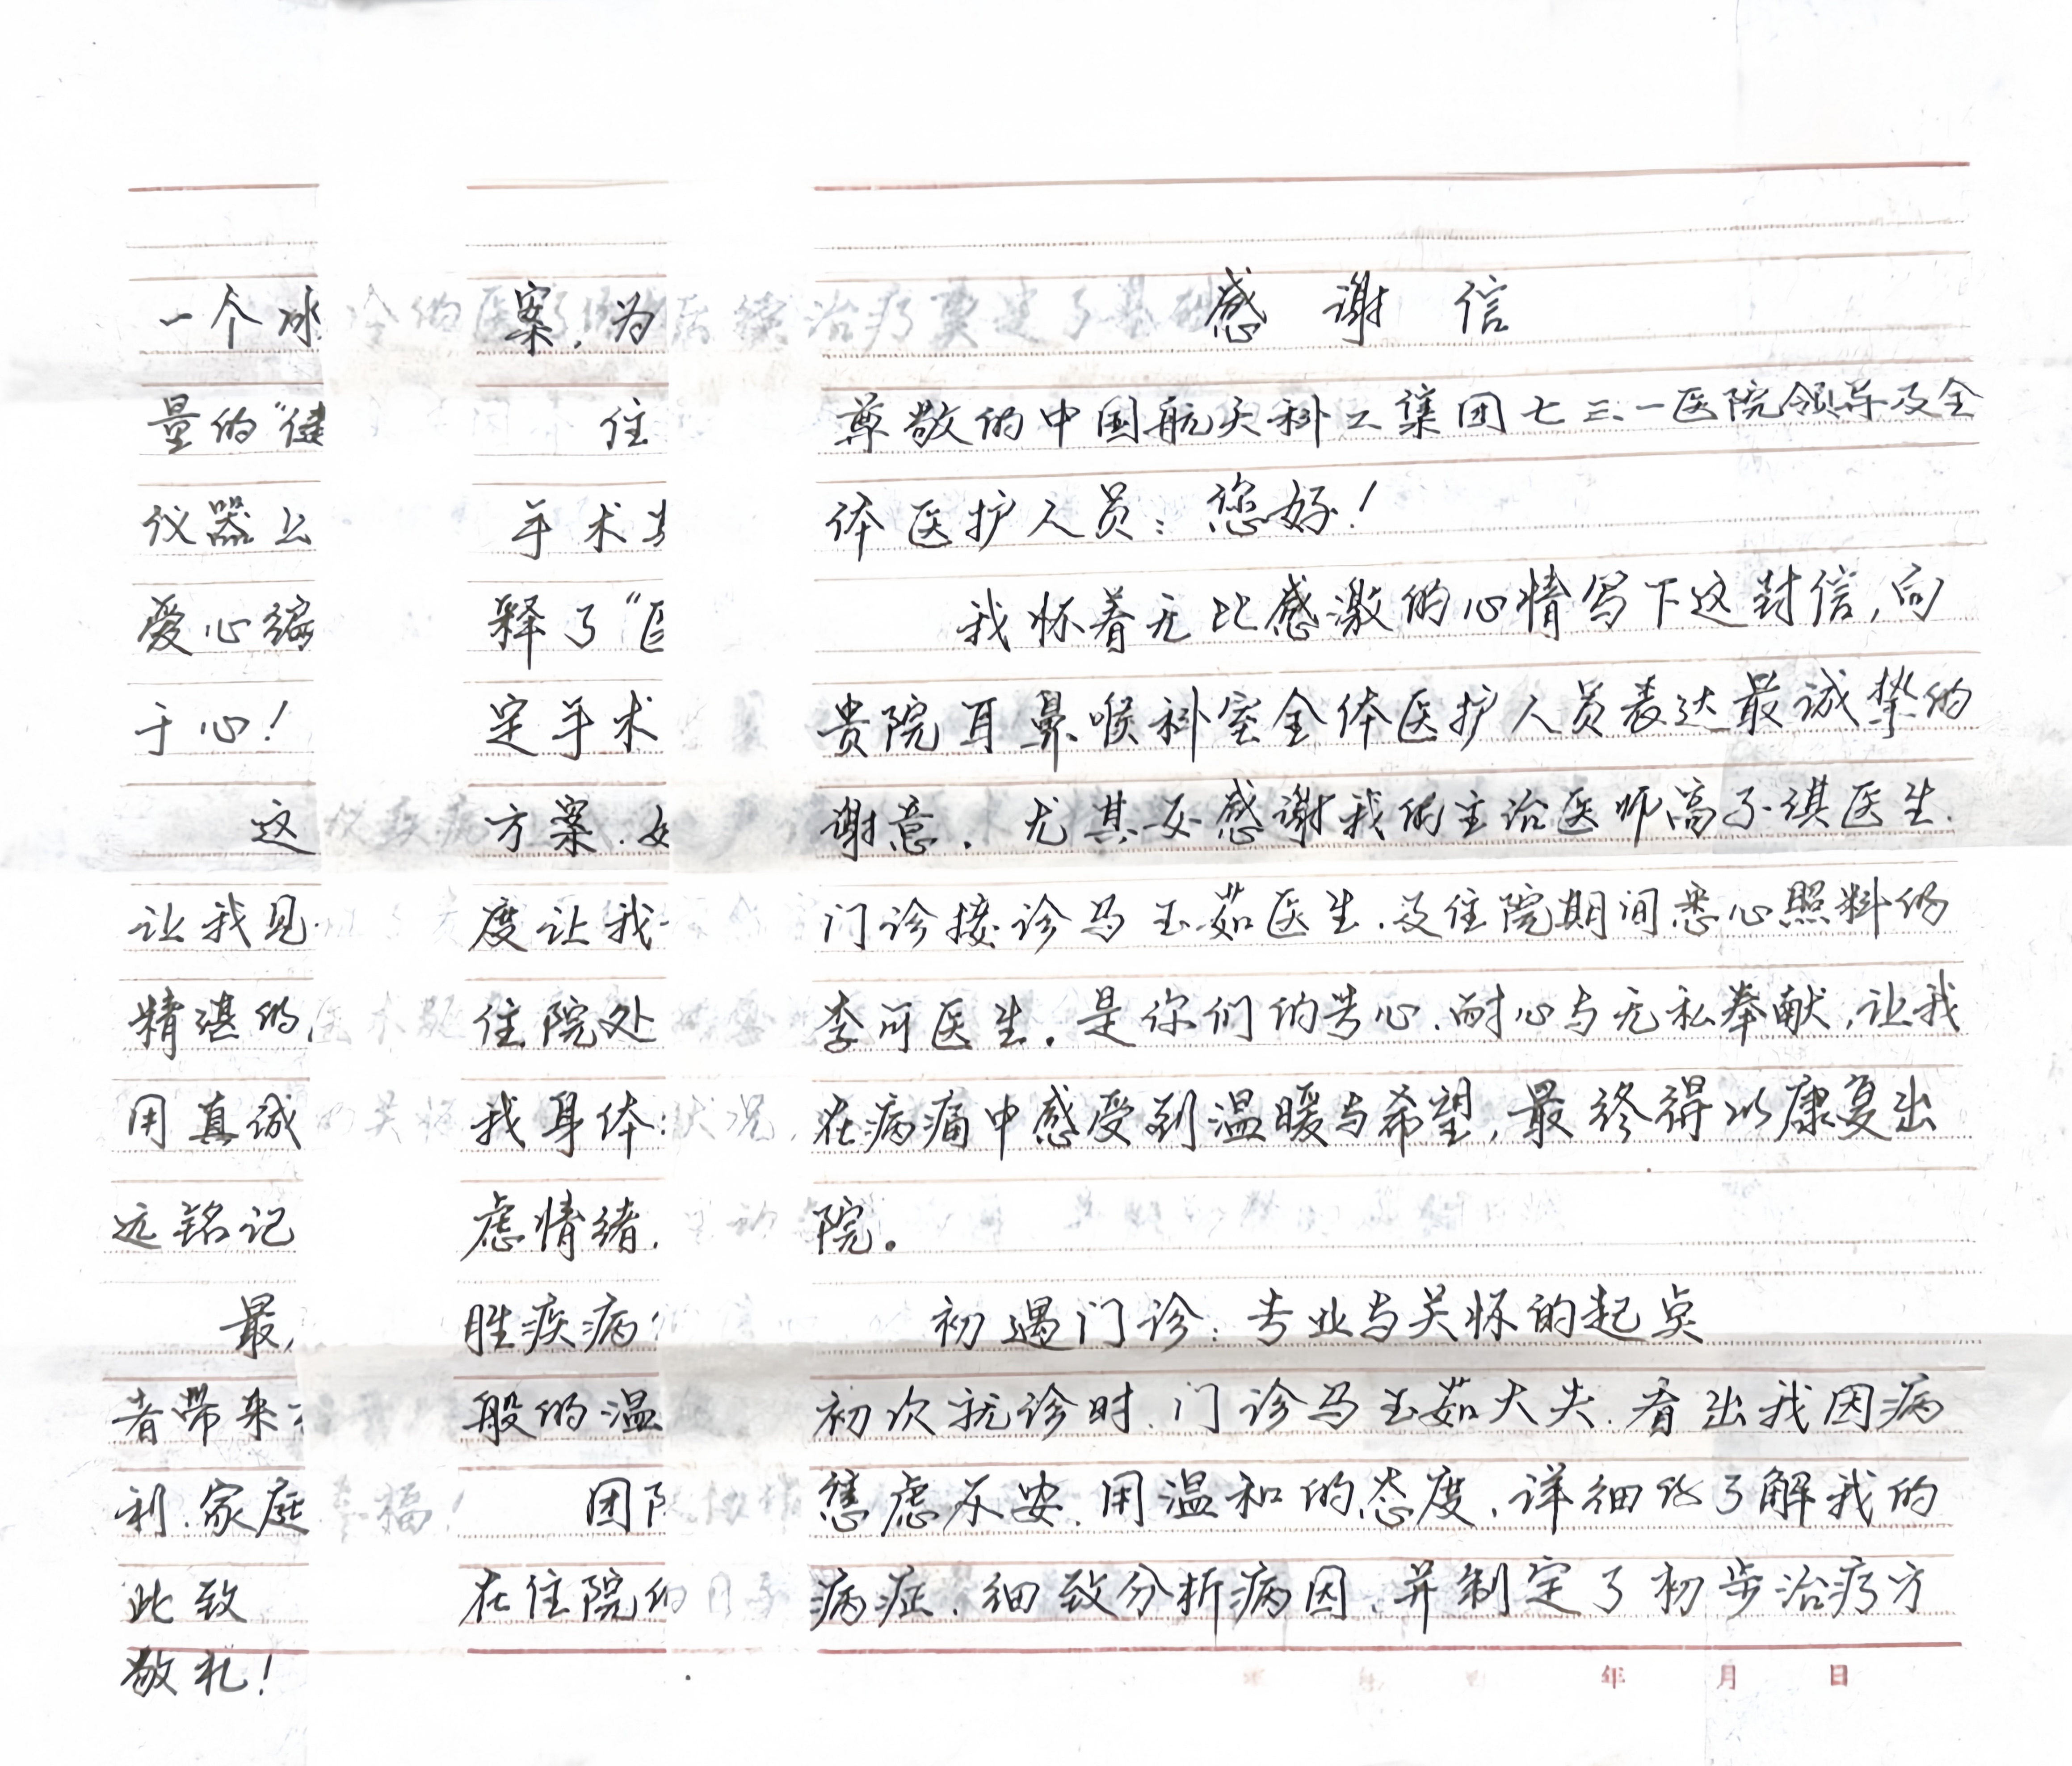 感谢信
尊敬的中国航天科工集团七三一医院领导及全
体医护人员：您好！
我怀着无比感激的心情写下这封信，向
贵院耳鼻喉科室全体医护人员表达最诚挚的
谢意。尤其要感谢我的主治医师高子淇医生、
门诊接诊马玉茹医生、及住院期间悉心照料的
李可医生。是你们的责心、耐心与无私奉献，让我
在病痛中感受到温暖与希望，最终得以康复出
院。
初遇门诊：专业与关怀的起点
初次就诊时、门诊马玉茹大夫、看出我因病
焦虑不安、用温和的态度、详细地了解我的
病症、细致分析病因、并制定了初步治疗方
年 月 日
案、为后续治疗奠定了基础
住
手术
释了“医
定手术
方案、
度让我
住院处
我身体状况，
虑情绪、
胜疾病
般的温
团队
在住院的
一个冰冷的医
量的“健
仪器上
爱心编
于心！
这
让我见
精湛的医术
用真诚的关怀
远铭记
最
者带来
利、家庭幸福！
此致
敬礼！